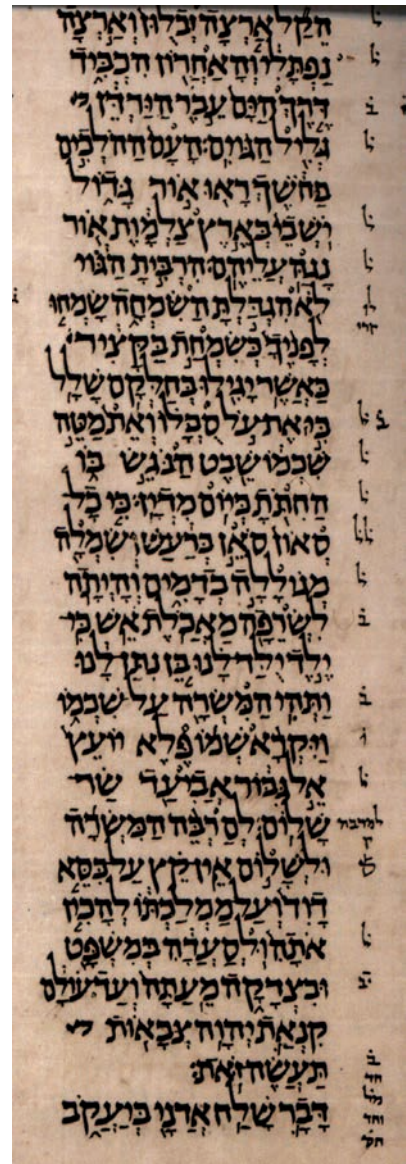 הֵקַל אַרְצָה זְבֻלוּן וְאַרְצָה
נַפְתָּלִי וְהָאַחֲרוֹן הִכְבִּיד
דֶּרֶךְ הַיָּם עֵבֶר הַיַּרְדֵּן
גְּלִיל הַגּוֹיִם׃ הָעָם הַהֹלְכִים
בַּחֹשֶׁךְ רָאוּ אוֹר גָּדוֹל
יֹשְׁבֵי בְּאֶרֶץ צַלְמָוֶת אוֹר
נָגַהּ עֲלֵיהֶם׃ הִרְבִּיתָ הַגּוֹי
לֹא הִגְדַּלְתָּ הַשִּׂמְחָה שָׂמְחוּ
לְפָנֶיךָ כְּשִׂמְחַת בַּקָּצִיר
כַּאֲשֶׁר יָגִילוּ בְּחַלְּקָם שָׁלָל׃
כִּי אֶת עֹל סֻבֳּלוֹ וְאֵת מַטֵּה
שִׁכְמוֹ שֵׁבֶט הַנֹּגֵשׂ בּוֹ
הַחִתֹּתָ כְּיוֹם מִדְיָן׃ כִּי כָל
סְאוֹן סֹאֵן בְּרַעַשׁ וְשִׂמְלָה
מְגוֹלָלָה בְדָמִים וְהָיְתָה
לִשְׂרֵפָה מַאֲכֹלֶת אֵשׁ׃ כִּי
יֶלֶד יֻלַּד לָנוּ בֵּן נִתַּן לָנוּ
וַתְּהִי הַמִּשְׂרָה עַל שִׁכְמוֹ
וַיִּקְרָא שְׁמוֹ פֶּלֶא יוֹעֵץ
אֵל גִּבּוֹר אֲבִי עַד שַׂר
שָׁלוֹם׃ לםַרְבֵּה הַמִּשְׂרָה
וּלְשָׁלוֹם אֵין קֵץ עַל כִּסֵּא
דָוִד וְעַל מַמְלַכְתּוֹ לְהָכִין
אֹתָהּ וּלְסַעֲדָהּ בְּמִשְׁפָּט
וּבִצְדָקָה מֵעַתָּה וְעַד עוֹלָם
קִנְאַת יְהוָה צְבָאוֹת
תַּעֲשֶׂה זֹּאת׃
דָּבָר שָׁלַח אֲדֹנָי בְּיַעֲקֹב